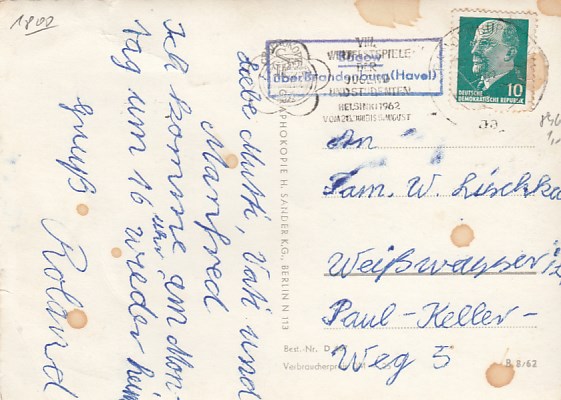 1800
Liebe Mutti, Vati und
Manfred
Ich komme am Mon-
tag um 16 uhr wieder heim
Gruß Roland
VIII.
WELTFESTSPIELE
DER
JUGEND
UND STUDENTEN
HELSINKI 1962
VOM 28. JULI BIS 6. AUGUST
Bücow
über Brandenburg (Havel)
10
DEUTSCHE
DEMOKRATISCHE REPUBLIK
An
Fam. W. Lischka
Weißwasser
Paul-Keller-
Weg 5
H. SANDER K.G., BERLIN N 113
Best.-Nr. D
Verbraucherpreis
B 8/62